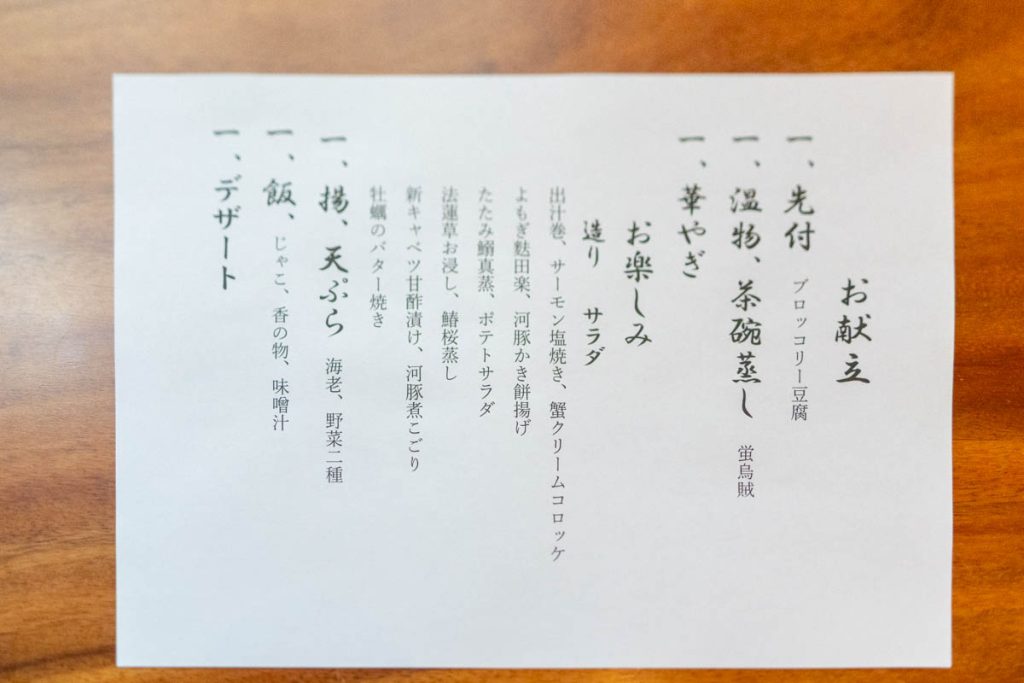 お献立
一、先付 ブロッコリー豆腐
一、温物、茶碗蒸し 蛍烏賊
一、華やぎ
お楽しみ
造り サラダ
出汁巻、サーモン塩焼き、蟹クリームコロッケ
よもぎ麩田楽、河豚かき餅揚げ
たたみ鰯真蒸、ポテトサラダ
法蓮草お浸し、鰆桜蒸し
新キャベツ甘酢漬け、河豚煮こごり
牡蠣のバター焼き
一、揚、天ぷら 海老、野菜二種
一、飯、じゃこ、香の物、味噌汁
一、デザート